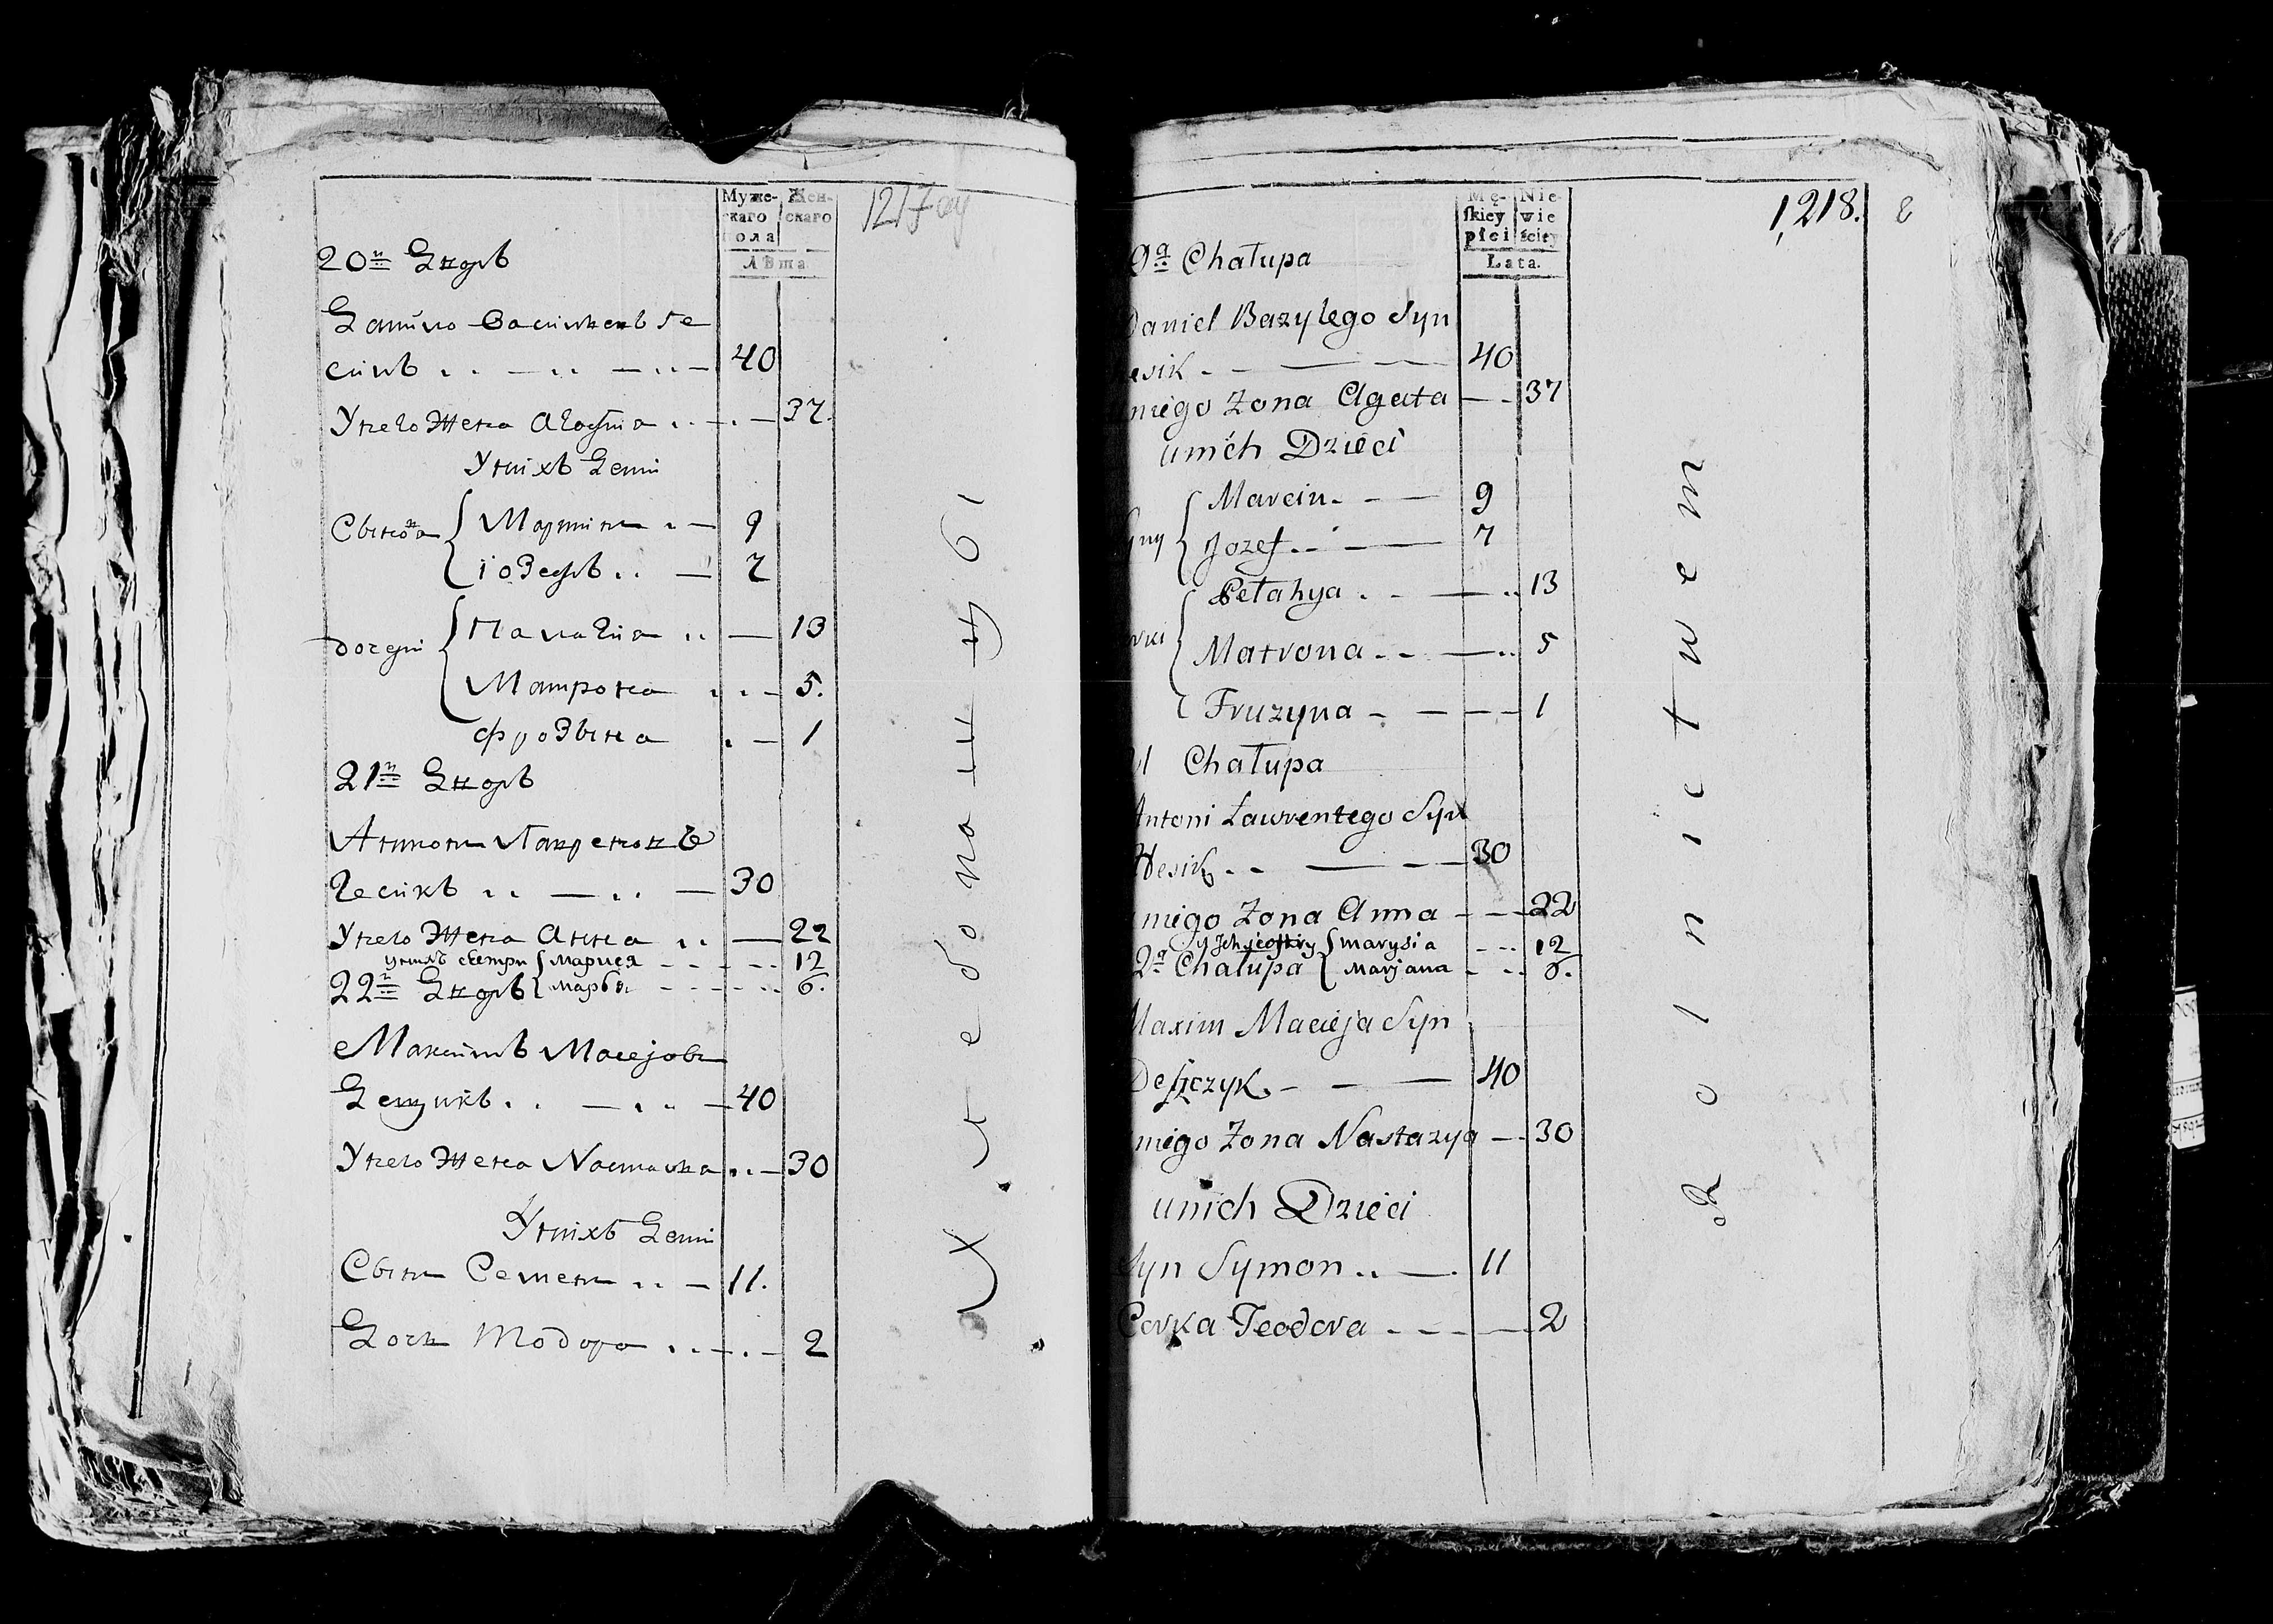 Муже-
скаго
пола
Жен-
скаго
Лѣта
1217 оу
20й Дворъ
Данило Васильевъ Ге
сикъ 40
Унего Жена Агафия 37.
Унихъ Дети
Сынова { Мартинъ 9
іозефъ 7
дочери { Палагия 13
Матрона 5.
фрозына 1
21й Дворъ
Антонъ Лавреновъ
Гесикъ 30
Унего Жена Анна 22
унихъ сестри { Мария 12
22й Дворъ { Марья 6.
Максимъ Мацејовъ
Дещикъ 40
Унего Жена Настазиа 30
Унихъ Дети
Сынъ Семенъ 11.
Дочъ Тодора 2
Хлебопашцы
Mę-
skiey
płci
Nie-
wie
ściey
Lata.
1,218.
0a Chałupa
Daniel Bazylego Syn
esik 40
niego Zona Agata 37
unich Dzieci
yny { Marcin 9
Jozef 7
{ Pełahya 13
Matrona 5
Fruzyna 1
Chałupa
Antoni Lawrentego Syn
Hesik 30
niego Zona Anna 22
{ marysia 12
2a Chałupa { Marjana 6.
Maxim Macieja Syn
Deszczyk 40
niego Zona Nastazya 30
unich Dzieci
Syn Symon 11
Corka Teodora 2
Rolnictwem